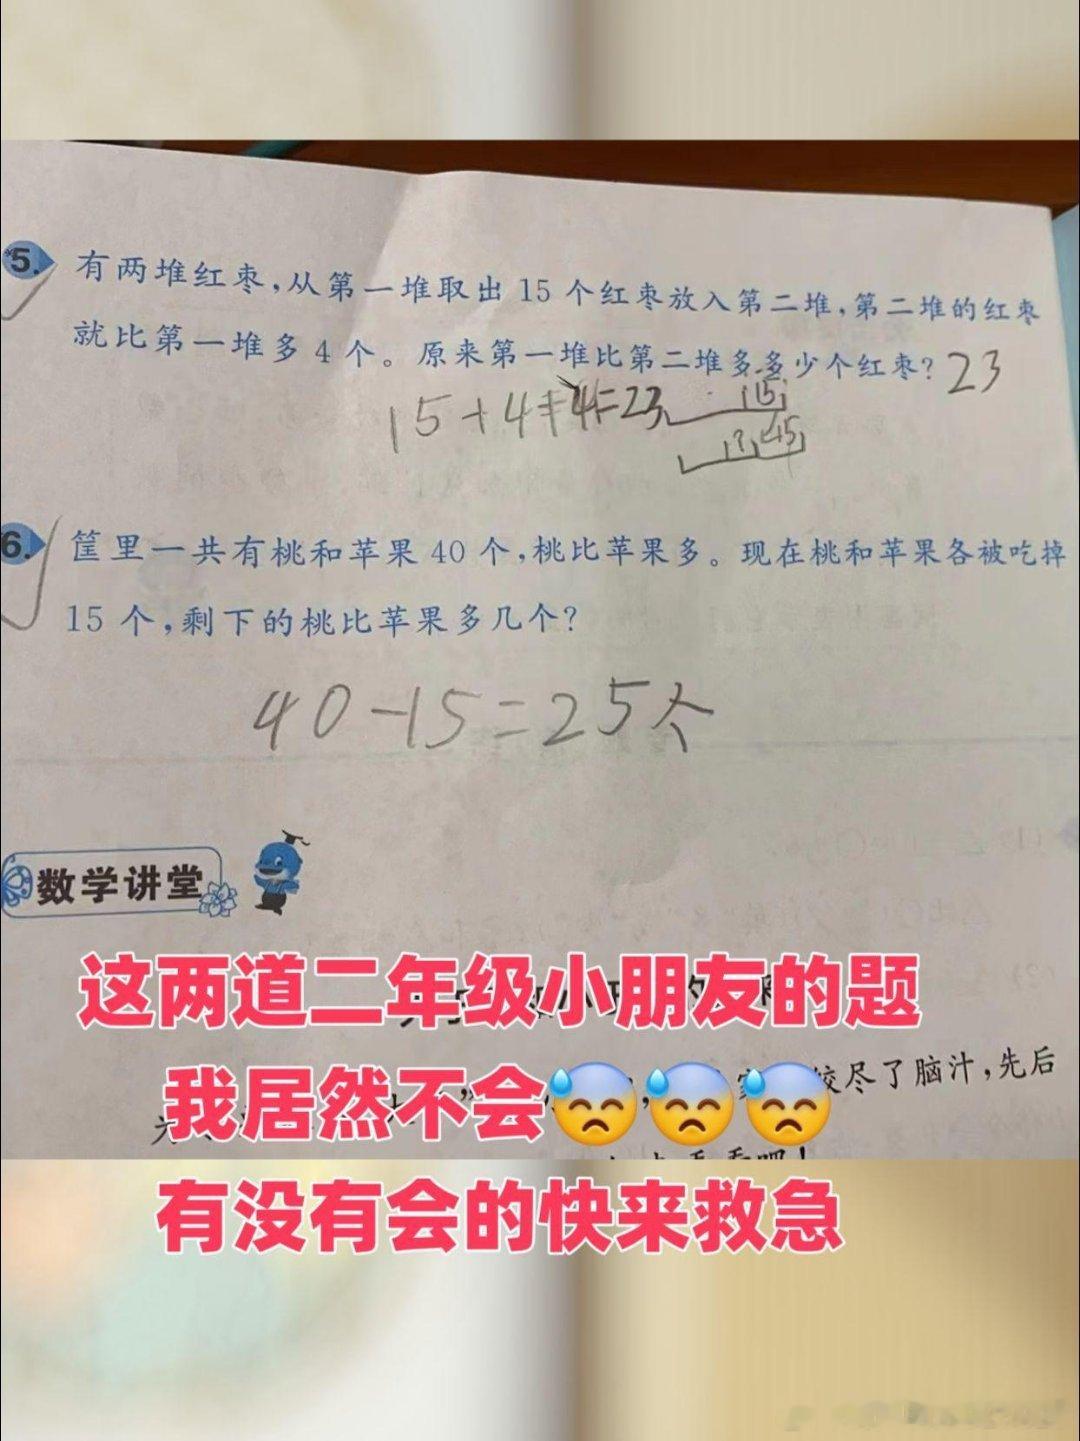 5. 有两堆红枣,从第一堆取出 15 个红枣放入第二堆,第二堆的红枣
就比第一堆多 4 个。原来第一堆比第二堆多多少个红枣? 23
15+4+4=23
15
? 4 15
6. 筐里一共有桃和苹果 40 个,桃比苹果多。现在桃和苹果各被吃掉
15 个,剩下的桃比苹果多几个?
40-15=25个
数学讲堂
这两道二年级小朋友的题
我居然不会😓😓😓
绞尽了脑汁,先后
有没有会的快来救急